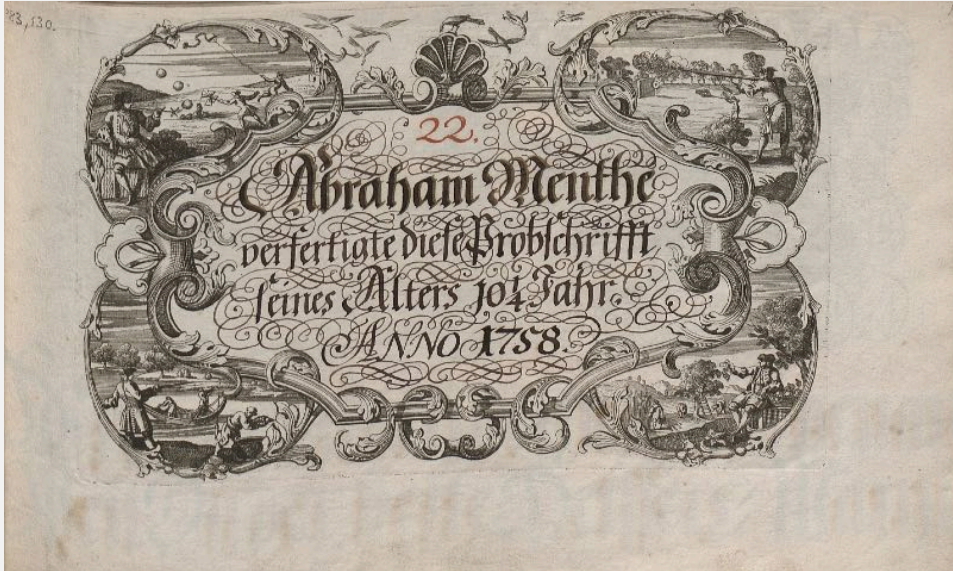 22.
Abraham Menthe
verfertigte diese Probschrifft
seines Alters 10 1/4 Jahr.
ANNO 1758.